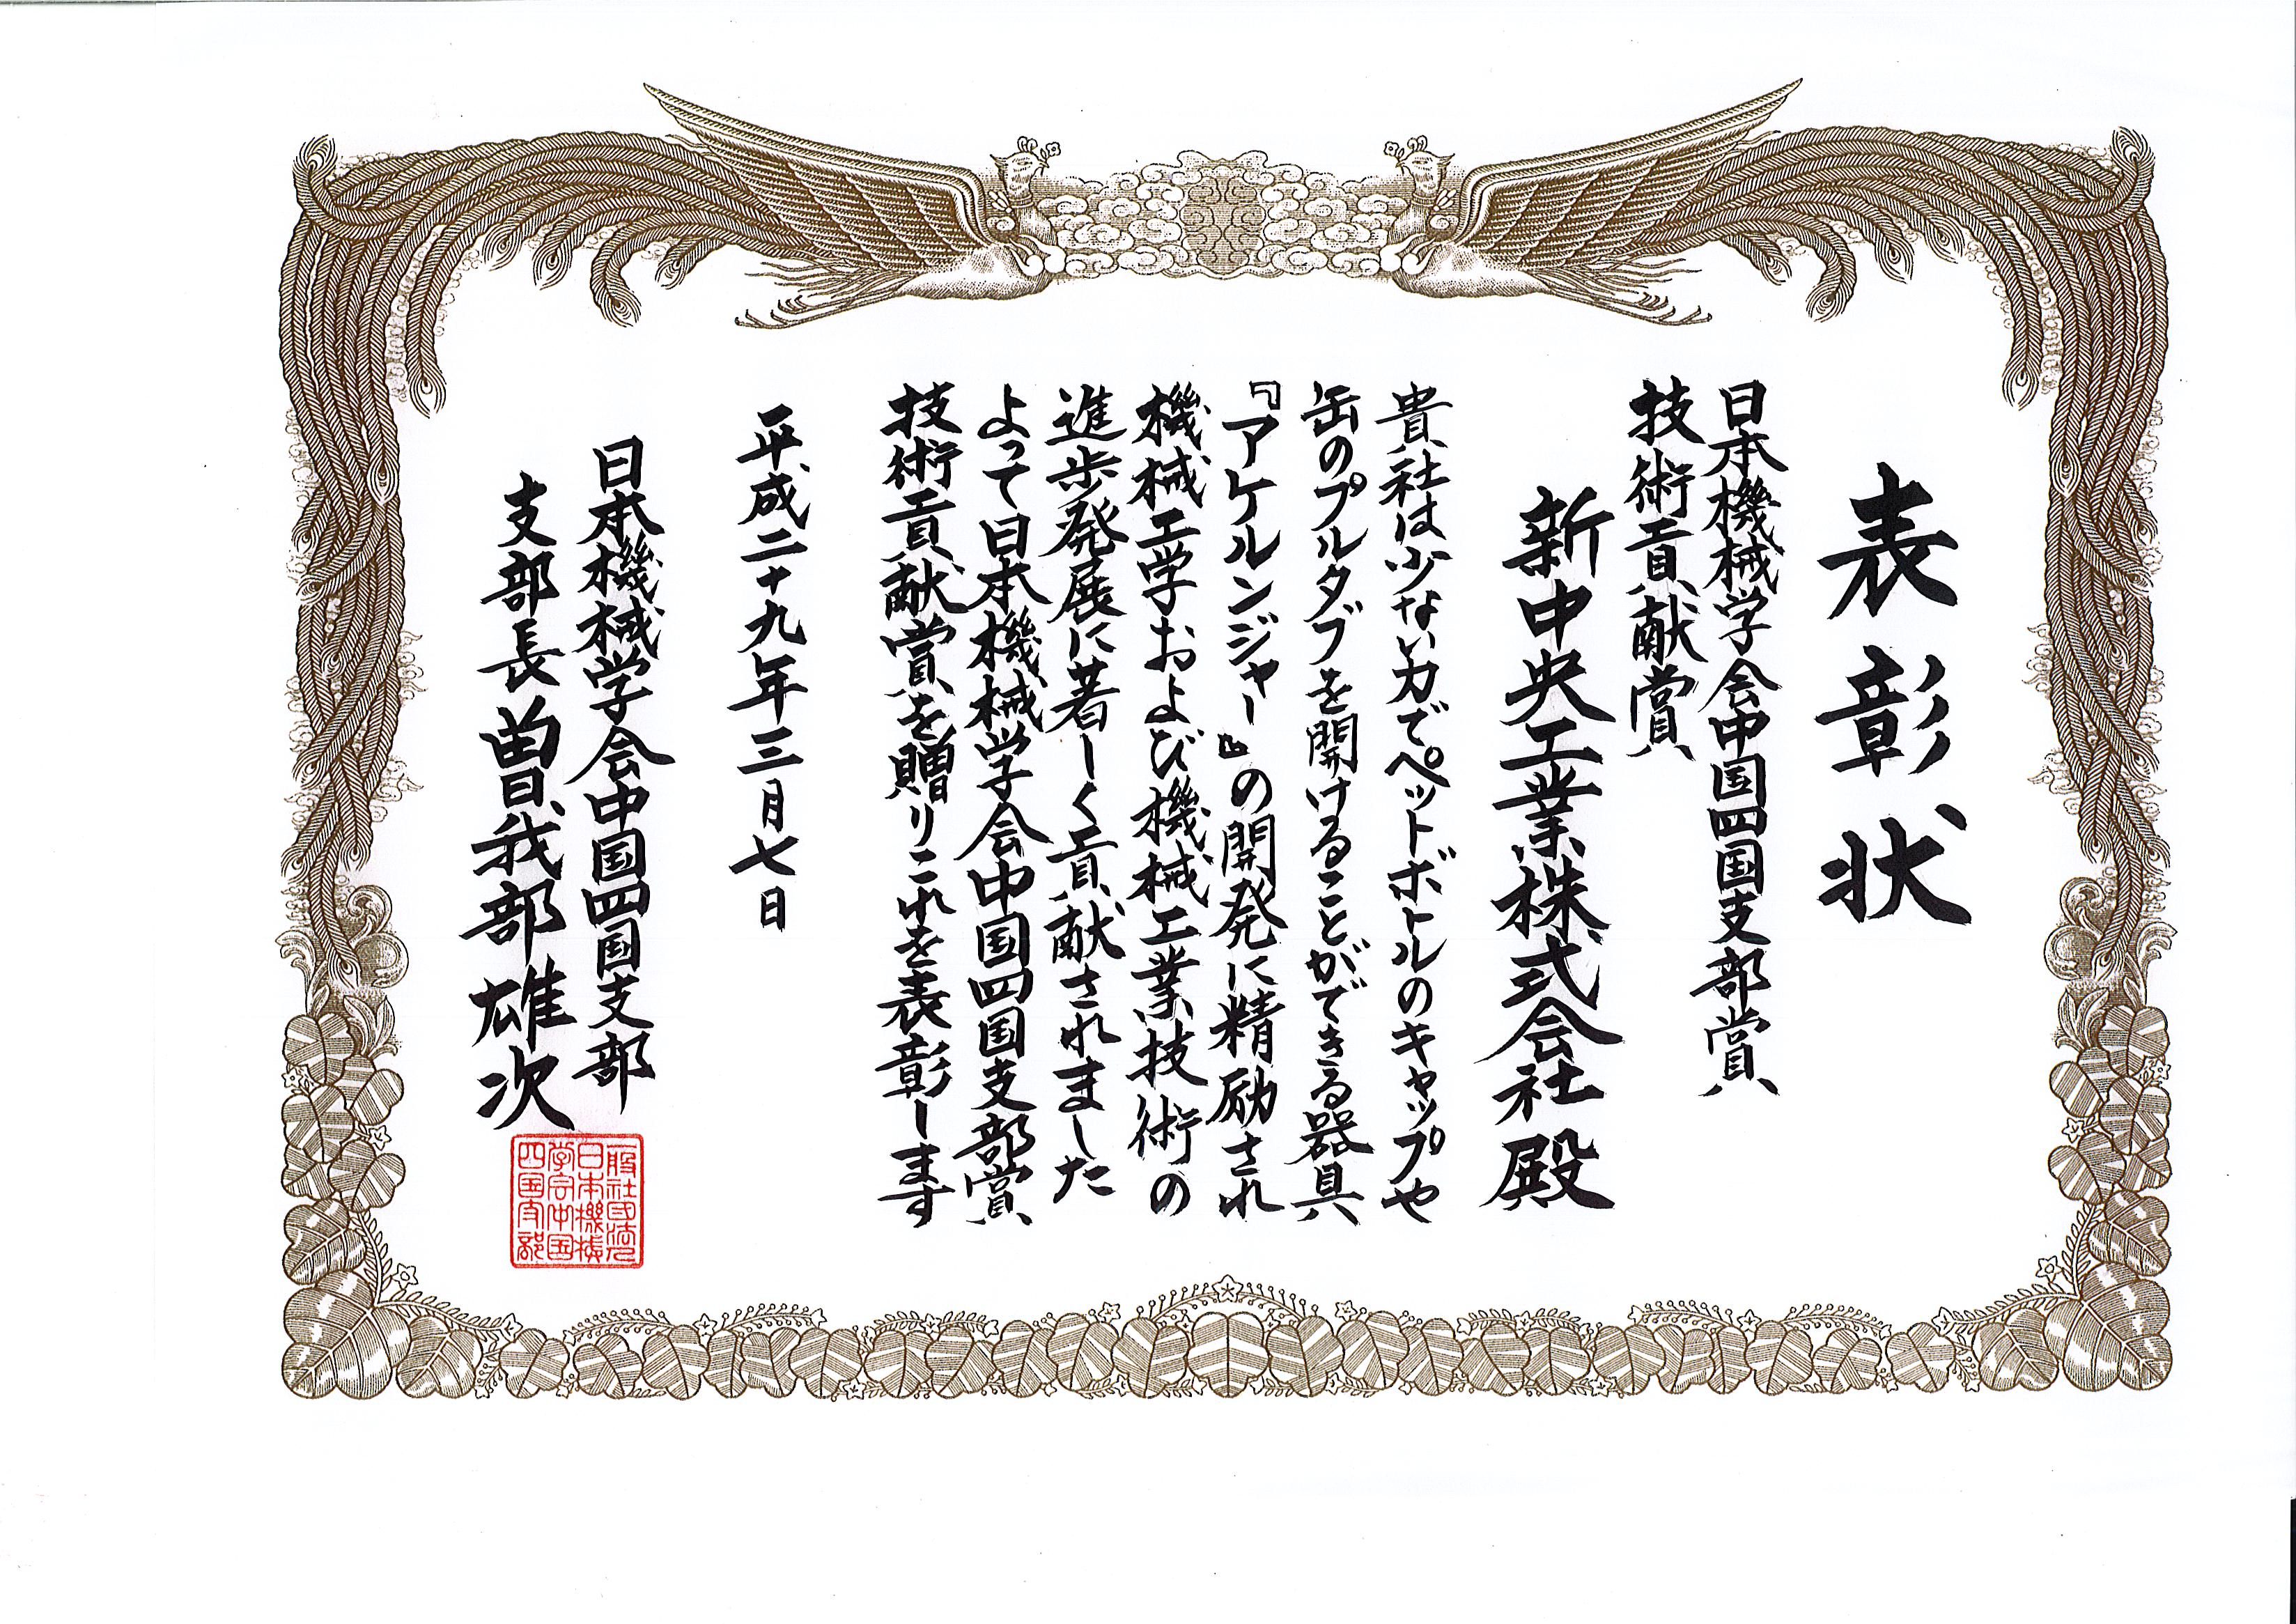 表彰状
日本機械学会中国四国支部賞
技術貢献賞
新中央工業株式会社 殿
貴社は少ない力でペットボトルのキャップや
缶のプルタブを開けることができる器具
『アケルンジャー』の開発に精励され
機械工学および機械工業技術の
進歩発展に著しく貢献されました
よって日本機械学会中国四国支部賞
技術貢献賞を贈りこれを表彰します
平成二十九年三月七日
日本機械学会中国四国支部
支部長 曽我部雄次
一般社団法人
日本機械
学会中国
四国支部